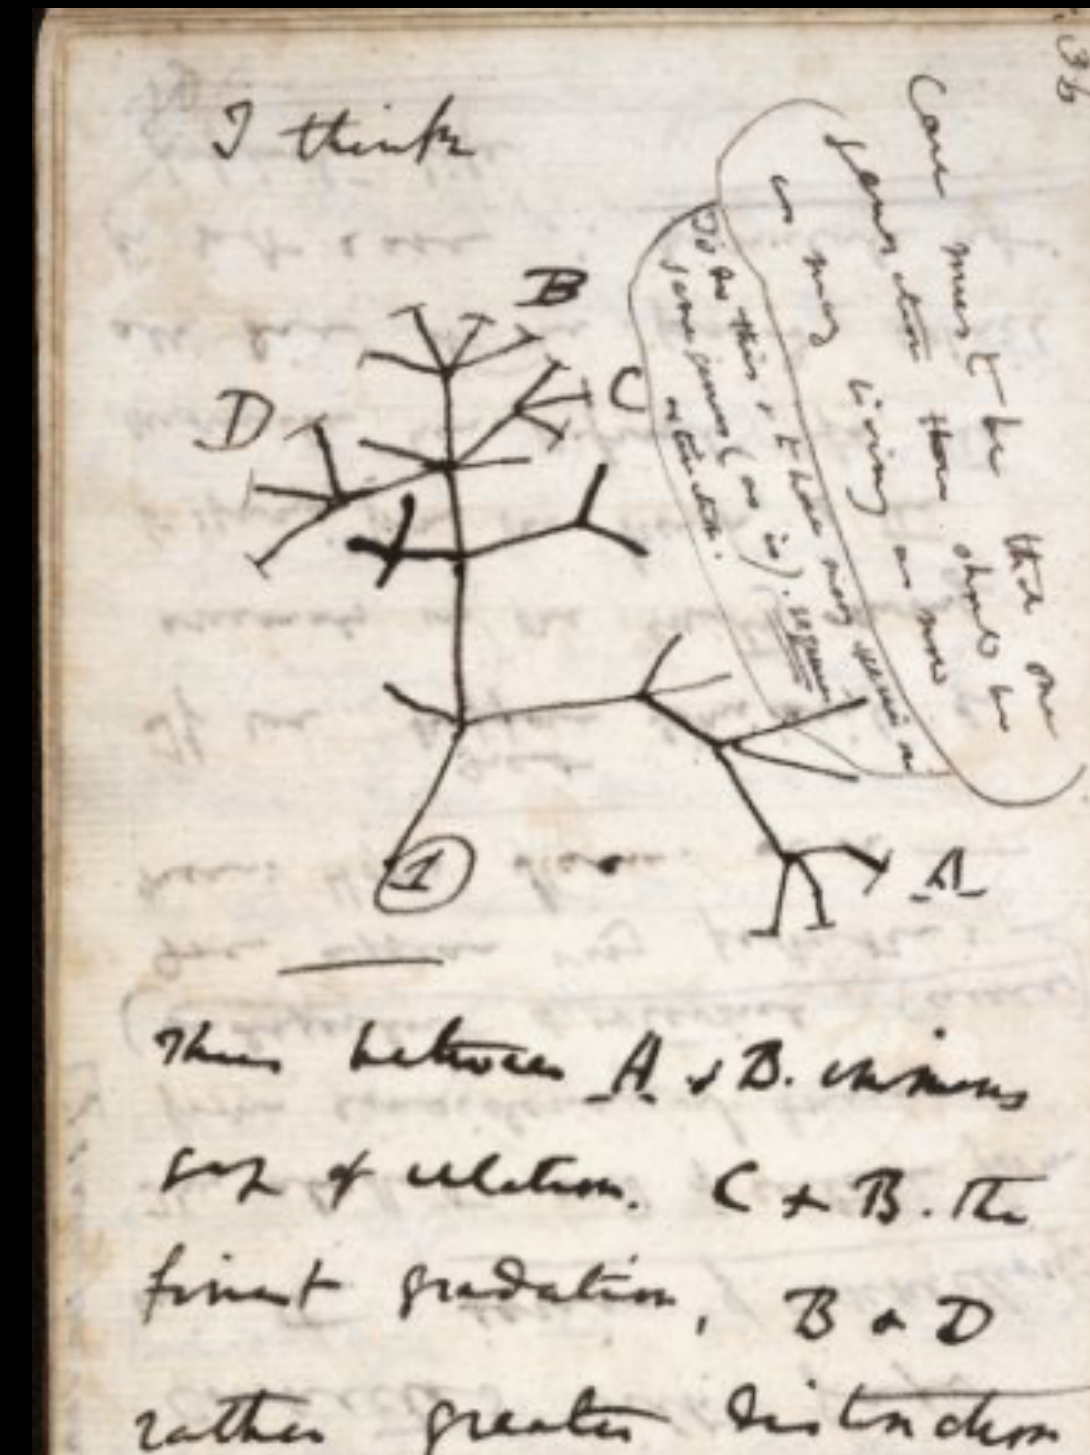 36
I think
Case must be that one
generation then should be
as many living as now
To do this & to have many species in
same genus (as is). requires
extinction.
B
C
D
A
1
Thus between A & B. immens
gap of relation. C & B. the
finest gradation, B & D
rather greater distinction